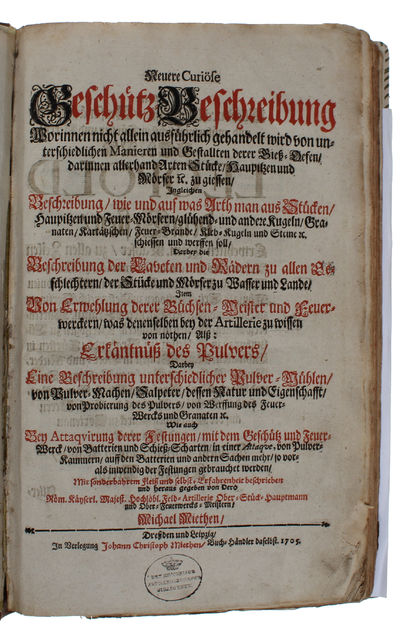 Neuere Curiöse
Geschütz Beschreibung
Worinnen nicht allein ausführlich gehandelt wird von un-
terschiedlichen Manieren und Gestallten derer Gieß-Oefen/
darinnen allerhand Arten Stücke/ Haupitzen und
Mörser ꝛc. zu giessen/
Ingleichen
Beschreibung/ wie und auf was Arth man aus Stücken/
Haupitzen und Feuer-Mörsern/ glühend- und andere Kugeln/ Gra-
naten/ Kartätzschen/ Feuer-Brände/ Kleb-Kugeln und Steine ꝛc.
schiessen und werffen soll/
Darbey die
Beschreibung der Laveten und Rädern zu allen Ge-
schlechtern/ der Stücke und Mörser zu Wasser und Lande/
Item
Von Erwehlung derer Büchsen-Meister und Feuer-
werckern/ was denenselben bey der Artillerie zu wissen
von nöthen/ Alß:
Erkäntnüß des Pulvers/
Darbey
Eine Beschreibung unterschiedlicher Pulver-Mühlen/
von Pulver-Machen/ Salpeter/ dessen Natur und Eigenschafft/
von Probierung des Pulvers/ von Werffung des Feuer-
Wercks und Granaten ꝛc.
Wie auch
Bey Attaqvirung derer Festungen/ mit dem Geschütz und Feuer-
Werck/ von Batterien und Schieß-Scharten/ in einer Attaqve, von Pulver-
Kammern/ auf den Batterien und andern Sachen mehr/ so vor-
als inwendig der Festungen gebrauchet werden/
Mit sonderbahrem Fleiß und selbst-Erfahrenheit beschrieben
und heraus gegeben von Dero
Röm. Käyserl. Majest. Hochlöbl. Feld-Artillerie Ober-Stück-Hauptmann
und Ober-Feuerwercks-Meistern/
Michael Miethen/
Dreßden und Leipzig/
In Verlegung Johann Christoph Miethen/ Buch-Händler daselbst. 1705.